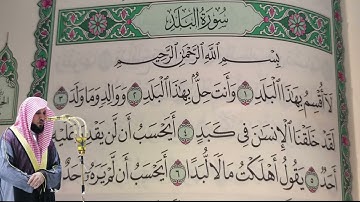 سُورَةُ الْبَلَدِ
بِسْمِ اللَّهِ الرَّحْمَٰنِ الرَّحِيمِ
لَا أُقْسِمُ بِهَٰذَا الْبَلَدِ ١ وَأَنتَ حِلٌّ بِهَٰذَا الْبَلَدِ ٢ وَوَالِدٍ وَمَا وَلَدَ ٣
لَقَدْ خَلَقْنَا الْإِنسَانَ فِي كَبَدٍ ٤ أَيَحْسَبُ أَن لَّن يَقْدِرَ عَلَيْهِ
أَحَدٌ ٥ يَقُولُ أَهْلَكْتُ مَالًا لُّبَدًا ٦ أَيَحْسَبُ أَن لَّمْ يَرَهُ أَحَدٌ